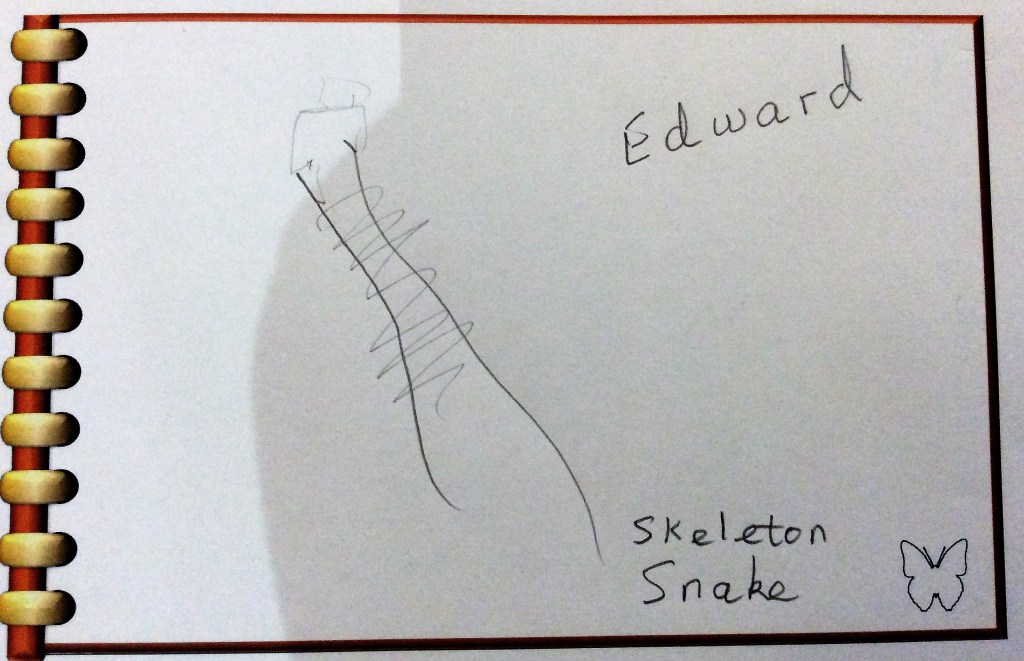 Edward
Skeleton
Snake